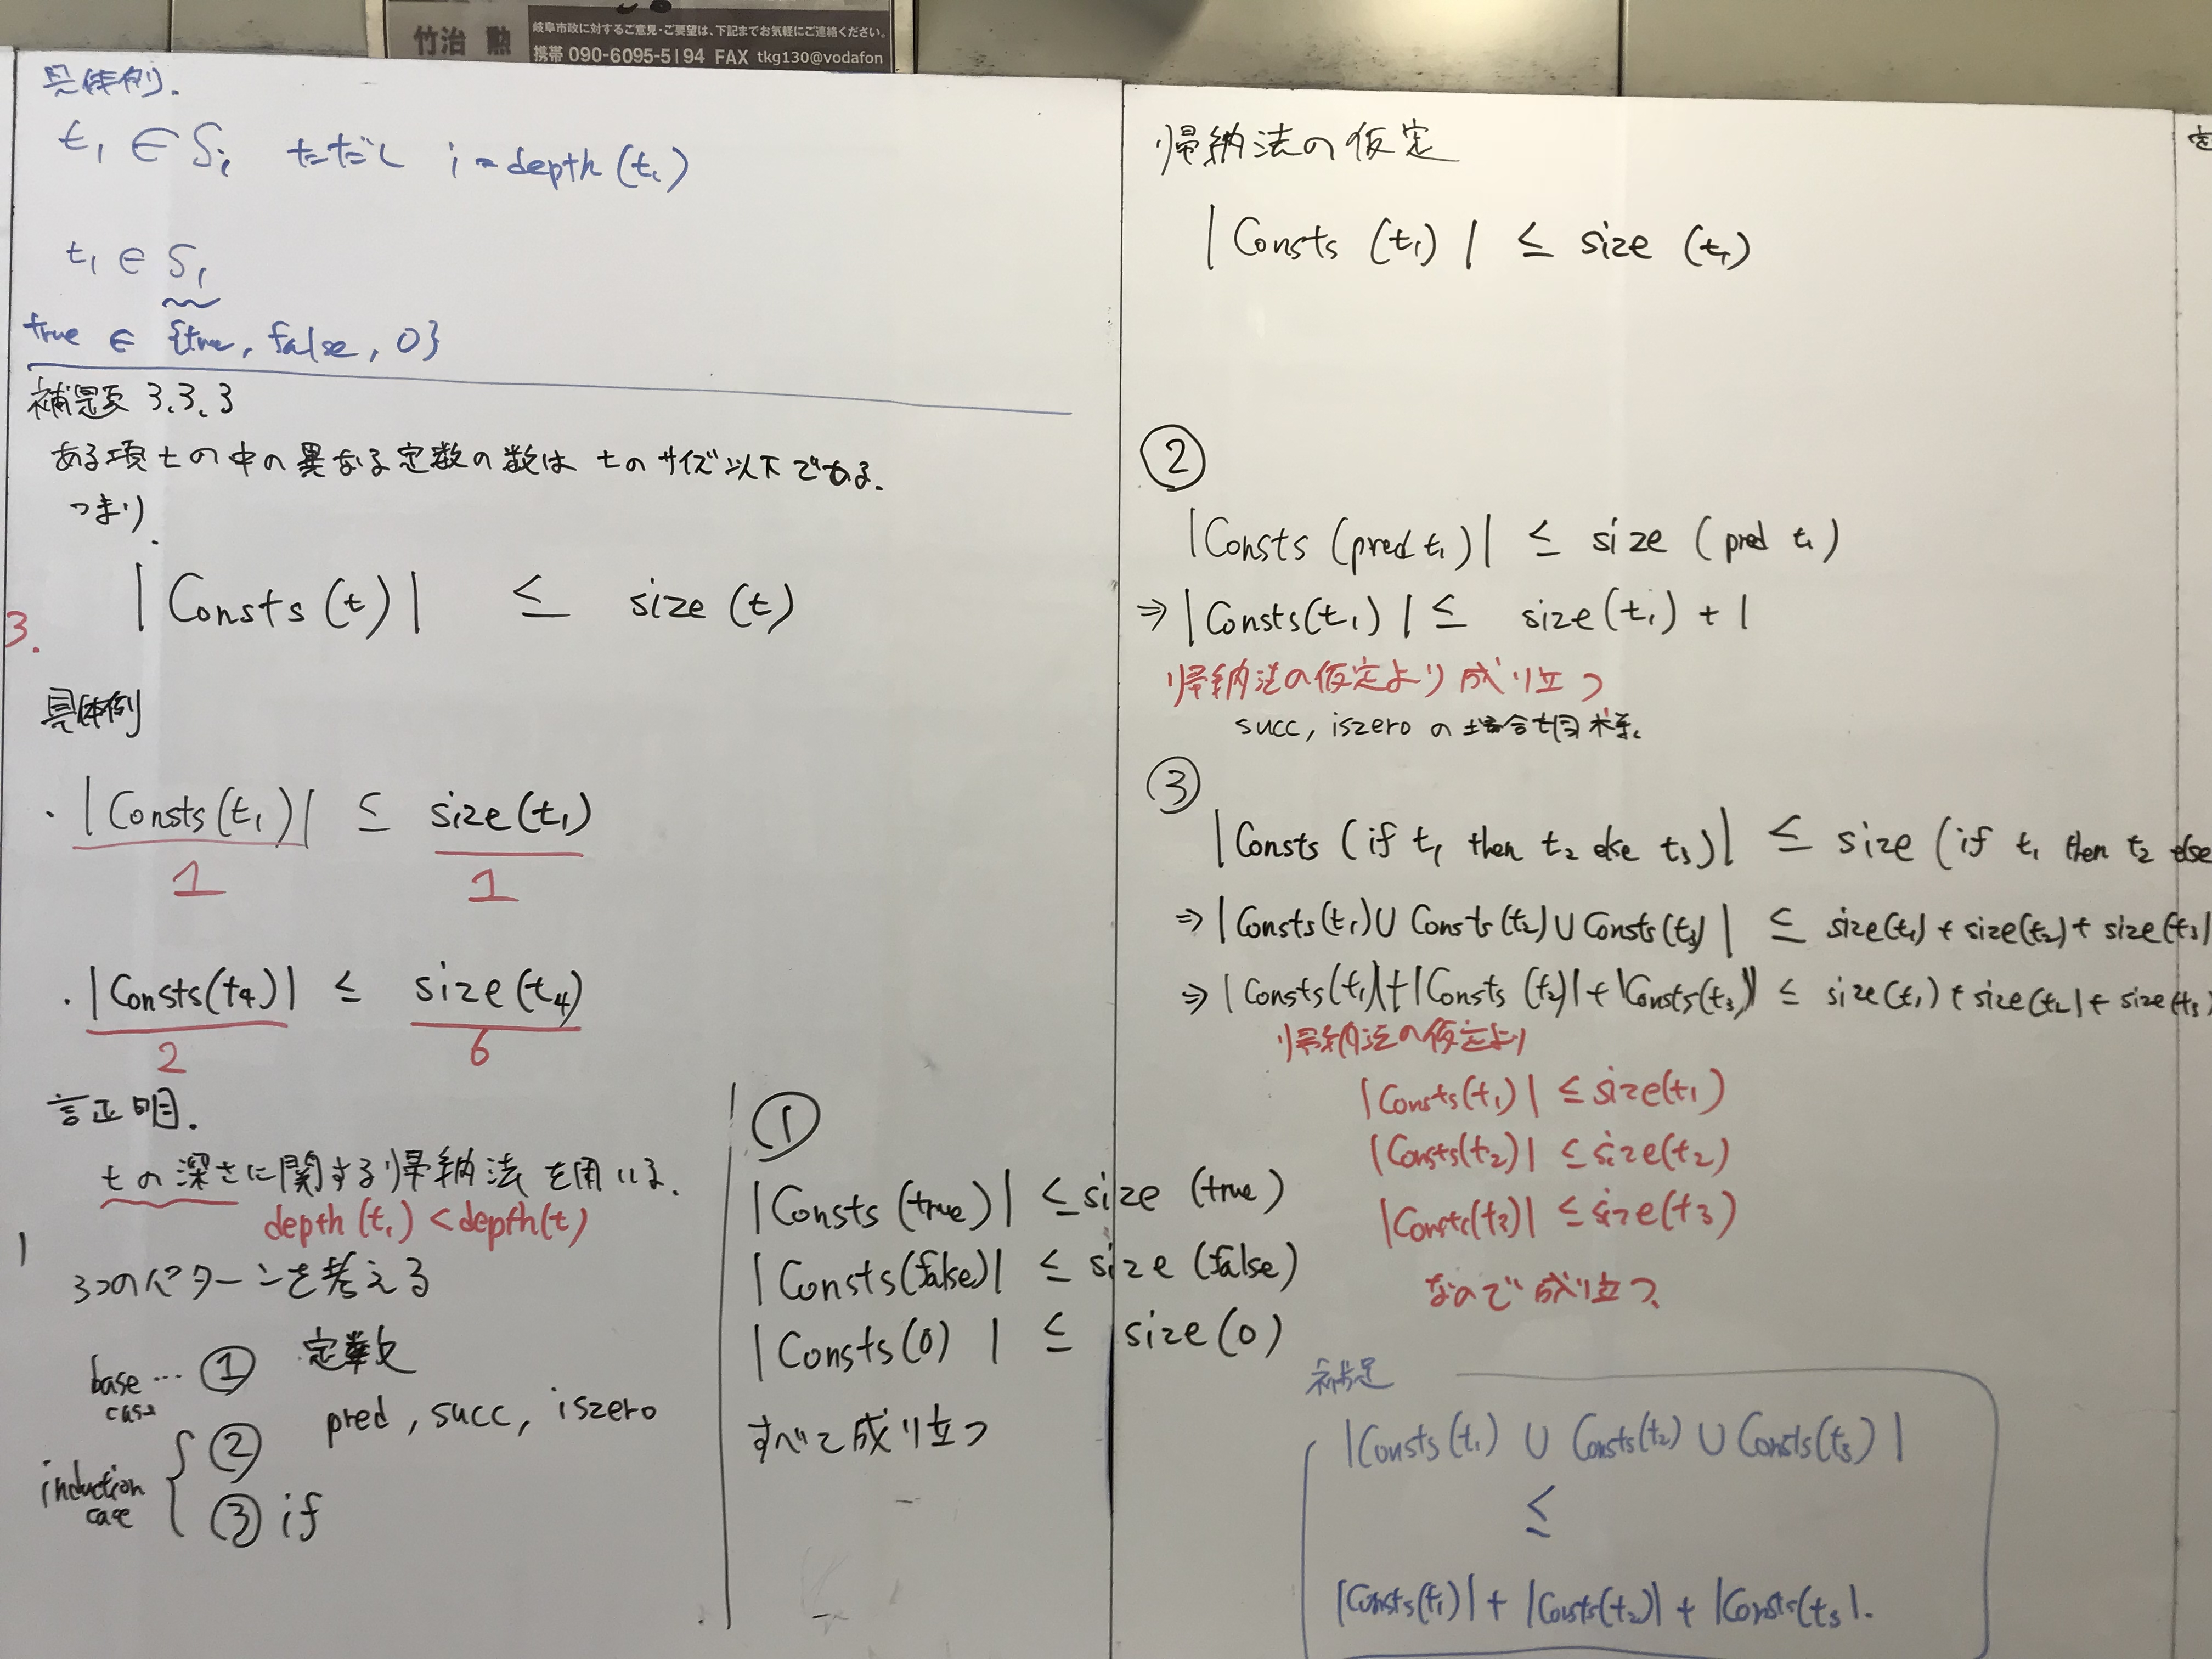 竹治 勲
岐阜市政に対するご意見・ご要望は、下記までお気軽にご連絡ください。
携帯 090-6095-5194 FAX tkg130@vodafon
具体例.
t₁ ∈ Sᵢ ただし i = depth(t₁)
t₁ ∈ S₁
true ∈ {true, false, 0}
補題 3.3.3
ある項 t の中の異なる定数の数は t のサイズ以下である.
つまり.
|Consts(t)| ≤ size(t)
3.
具体例
・|Consts(t₁)| ≤ size(t₁)
1 1
・|Consts(t₄)| ≤ size(t₄)
2 6
証明.
t の深さに関する帰納法を用いる.
depth(t₁) < depth(t)
3つのパターンを考える
base case … ① 定数
induction case { ② pred, succ, iszero
③ if
①
|Consts(true)| ≤ size(true)
|Consts(false)| ≤ size(false)
|Consts(0)| ≤ size(0)
すべて成り立つ
帰納法の仮定
|Consts(t₁)| ≤ size(t₁)
②
|Consts(pred t₁)| ≤ size(pred t₁)
⇒ |Consts(t₁)| ≤ size(t₁) + 1
帰納法の仮定より成り立つ
succ, iszero の場合も同様.
③
|Consts(if t₁ then t₂ else t₃)| ≤ size(if t₁ then t₂ else
⇒ |Consts(t₁) ∪ Consts(t₂) ∪ Consts(t₃)| ≤ size(t₁) + size(t₂) + size(t₃)
⇒ |Consts(t₁)| + |Consts(t₂)| + |Consts(t₃)| ≤ size(t₁) + size(t₂) + size(t₃)
帰納法の仮定より
|Consts(t₁)| ≤ size(t₁)
|Consts(t₂)| ≤ size(t₂)
|Consts(t₃)| ≤ size(t₃)
なので成り立つ.
補足
|Consts(t₁) ∪ Consts(t₂) ∪ Consts(t₃)|
≤
|Consts(t₁)| + |Consts(t₂)| + |Consts(t₃|.